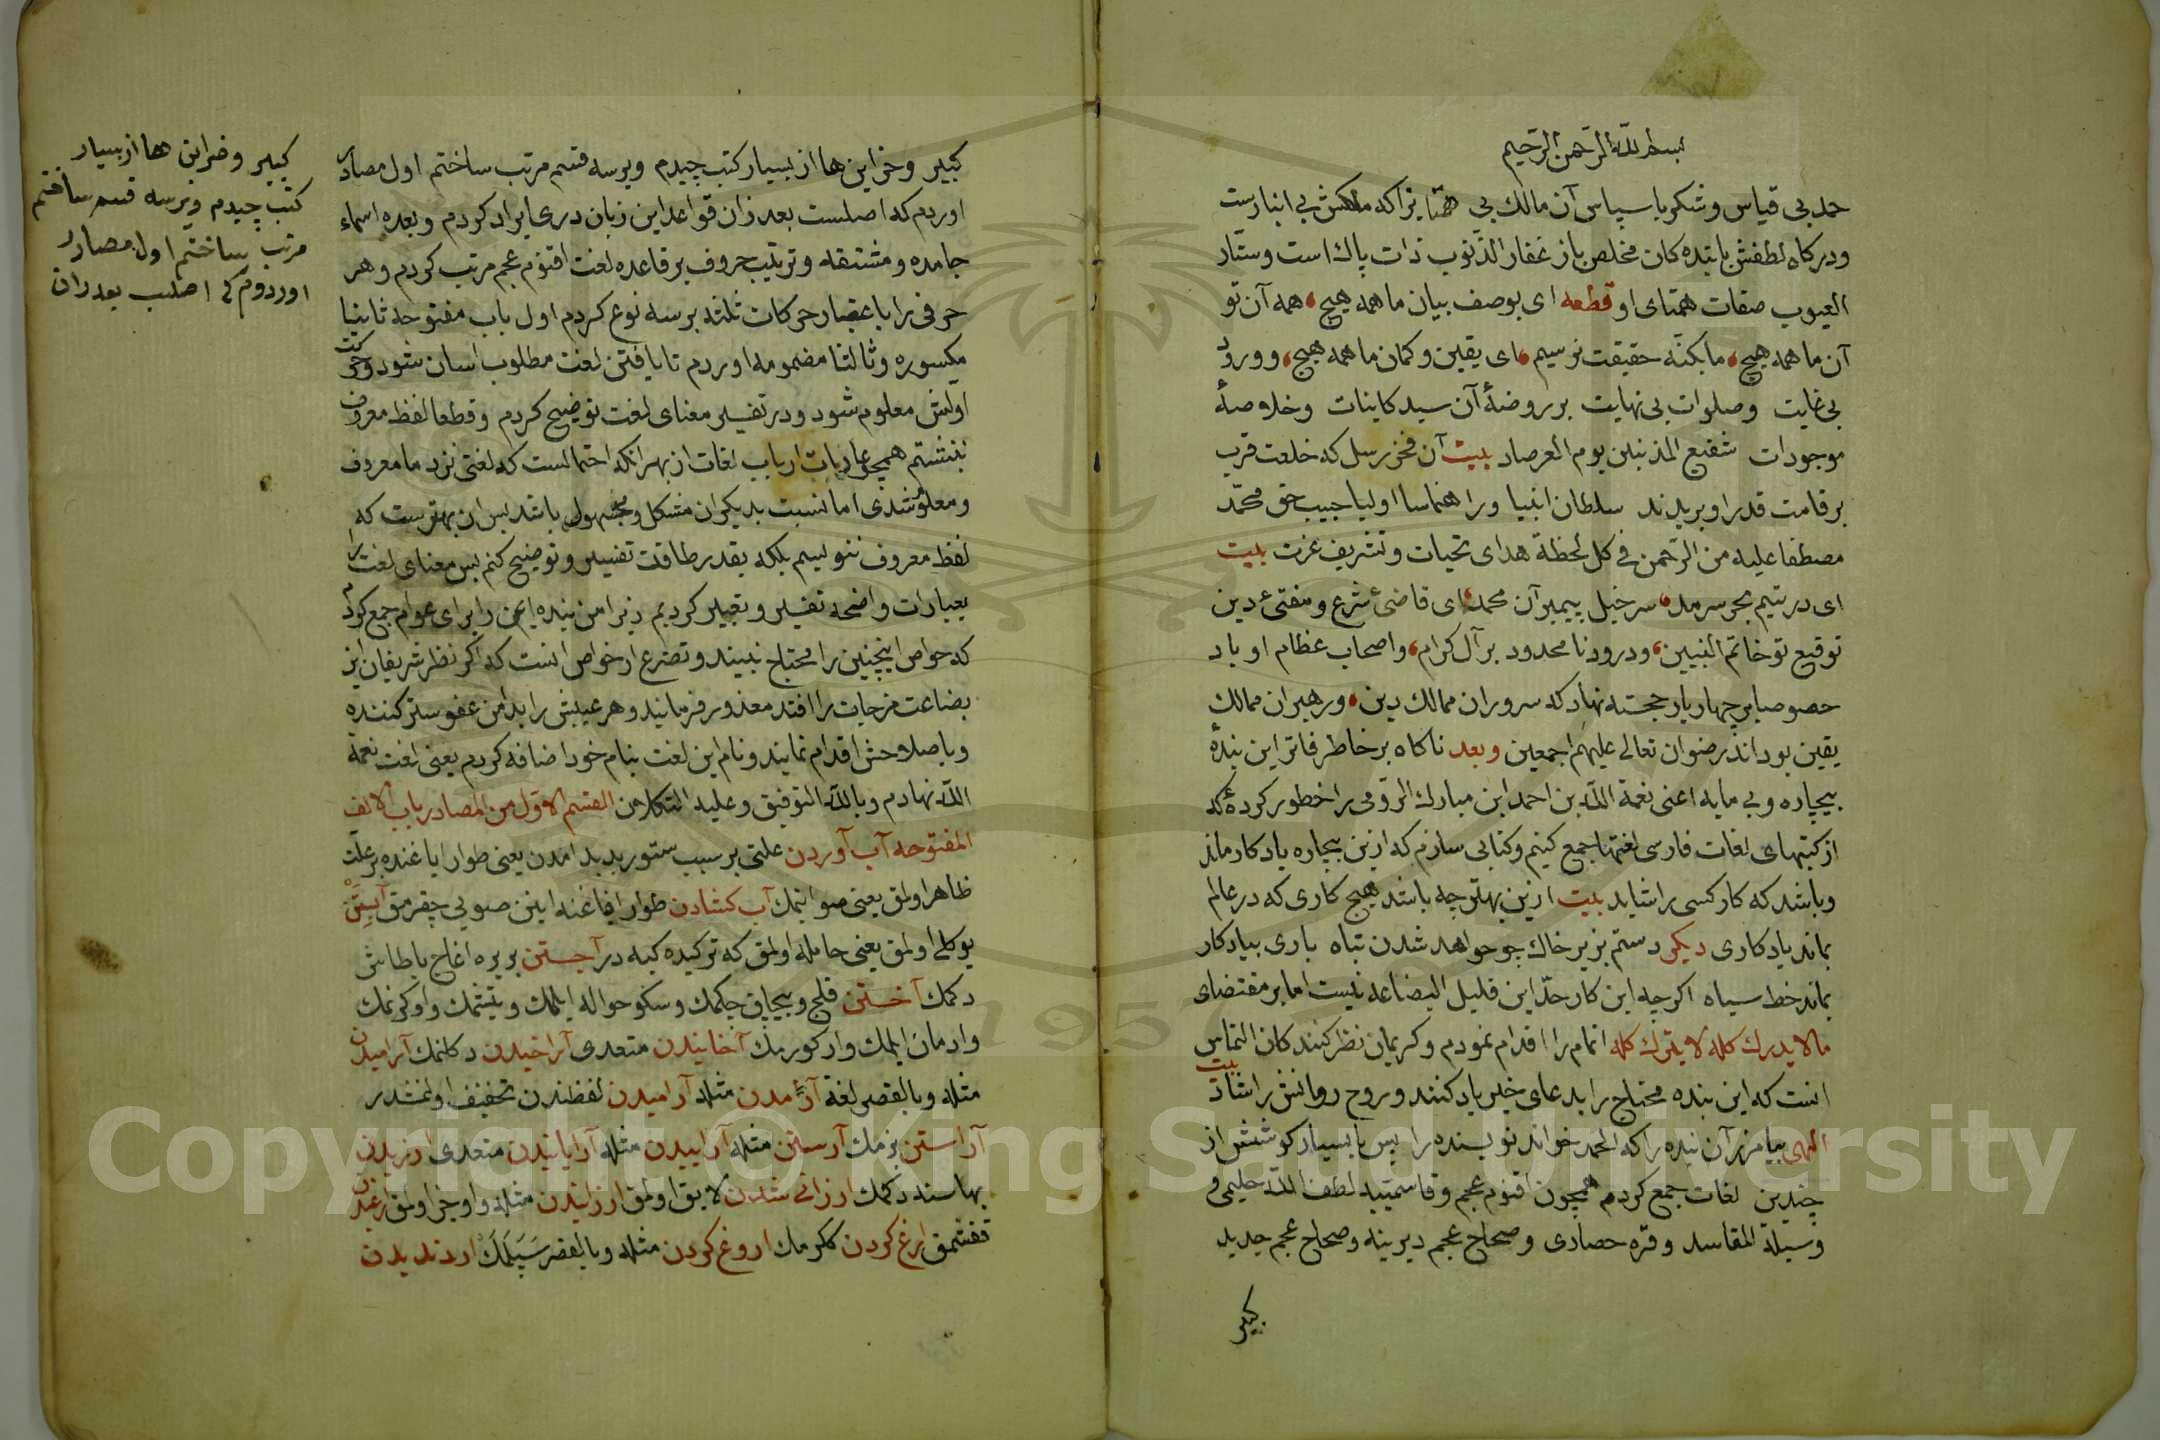 بسم الله الرحمن الرحيم
حمد بی قیاس و شکر با سپاس آن مالك بی همتا یراکه ملکش بی انبازست
ودرکاه لطفش بابنده کان مخلص باز غفار الذنوب ذات پاك است وستّار
العیوب صفات همتای او قطعه ای بوصف بیان ما همه هیچ همه آن تو
آن ما همه هیچ ما بکنه حقیقت نرسیم ای یقین وکمان ما همه هیچ و ورود
بی غایت وصلوات بی نهایت بر روضهٔ آن سید کاینات وخلاصهٔ
موجودات شفیع المذنبین یوم العرصاد بیت آن فخر رسل که خلعت قرب
بر قامت قدر او بریدند سلطان انبیا و راهنماسا اولیا حبیب حق محمّد
مصطفا علیه من الرّحمن فی کل لحظة هدای تحیات وتشریف عزت بیت
ای در یتیم بحر سرمد سر خیل پیمبرآن محمد ای قاضیٔ شرع ومفتیٔ دین
توقیع تو خاتم النبیین ودرود نا محدود بر آل کرام واصحاب عظام او باد
حصوصا بر چهار یار خجسته نهاد که سروران ممالك دین ورهبران ممالك
یقین بودند رضوان تعالی علیهم اجمعین وبعد ناکاه بر خاطر فاتر این بندهٔ
بیچاره وبی مایه اعنی نعمة اللّه بن احمد ابن مبارك الرّومی را خطور کرده که
از کتبهای لغات فارسی لغتها جمع کینم وکتابی سازم که ازین بیچاره یادکار ماند
وباشد که کار کسی را شاید بیت ازین بهتر چه باشد هیچ کاری که در عالم
بماند یادکاری دیکر دستم بزیر خاك چو حواهد شدن تباه باری بیادکار
بماند خط سیاه اکرچه این کار حدّ این قلیل البضاعه نیست اما بر مقتضای
ما لا یدرك کله لا یترك کله اتمام را اقدام نمودم وکریمان نظر کنندکان التماس
انست که این بنده محتاج را بدعای خیر یاد کنند وروح روانش را شاد بیت
الهی بیامرز آن بنده را که الحمد خواند نویسنده را پس با بسیار کوشش از
چندین لغات جمع کردم همچون اقنوم عجم وقاسمیّه لطف اللّه حلیمی و
وسیلة المقاسد وقره حصاری وصحاح عجم دیرینه وصحاح عجم جدید
کبیر
کبیر وخراین ها از بسیار کتب چیدم وبرسه قسم مرتب ساختم اول مصادر
اوردم که اصلست بعد زان قواعد این زبان دری ایراد کردم وبعده اسماء
جامده ومشتقه وترتیب حروف بر قاعده لغت اقنوم عجم مرتب کردم وهر
حرفی را باعتبار حرکات ثلثه برسه نوع کردم اول باب مفتوحه ثانیا
مکسوره وثالثا مضمومه اوردم تا یافتن لغت مطلوب اسان شود وحرکت
اولش معلوم شود ودر تفسیر معنای لغت توضیح کردم وقطعا لفظ معروف
ننبشتم همچو عادبات ارباب لغات از بهر انکه احتمالست که لغتی نزد ما معروف
ومعلوم شدی اما نسبت بدیکران مشکل ومجهول باشد پس ان بهترست که
لفظ معروف ننویسم بلکه بقدر طاقت تفسیر وتوضیح کنم پس معنای لغت را
بعبارات واضحه تفسیر وتعبیر کردیم زیرا من بنده این را برای عوام جمع کردم
که حواص اینچنین را محتاج نبیند وتضرع از خواص انست که اکر نظر شریفان این
بضاعت مزجات را افتد معذور فرمایند وهر عیبش را بدامن عفو ستر کننده
وباصلاحش اقدام نمایند ونام این لغت بنام خود اضافه کردم یعنی لغت نعمة
اللّه نهادم وباللّه التوفیق وعلیه التکلان القسم الاوّل من المصادر باب الالف
المفتوحه آب آوردن علتی بر سبب ستور بدید امدن یعنی طوار ایاغنده بر علّت
ظاهر اولمق یعنی صو اینمك آب کشادن طوار ایاغنه اینن صویی چقرمق آبستن
یوکلی اولمق یعنی حامله اولمق که ترکیده کبه در آجستن یریره اغاج یا طاش
دکمك آختن قلج وبچاق چکمك وسکو حواله ایلمك ویتیشمك واوکرنمك
وادمان ایلمك وار کورمك آخانیدن متعدی آراخیدن دکلنمك آرامیدن
مثله وبالقصر لغة آرٔمدن مثله آرامیدن لفظندن تخفیف اولنمشدر
آراستن بزمك آرستن مثله آراییدن مثله آرایانیدن متعدی ارزیدن
بهاسنه دکمك ارزانی شدن لایق اولمق ارزانیدن مثله واوجز اولمق ارغیدن
قفشمق ارغ کردن ککرمك اروغ کردن مثله وبالقصر سَپَلَمَكْ ارندیدن
کبیر وخراین هاا از بسیار
کتب چیدم وبرسه قسم ساختم
مرتب ساختم اول مصادر
اوردوم کی اصلب بعد زان
Copyright © King Saud University
1957